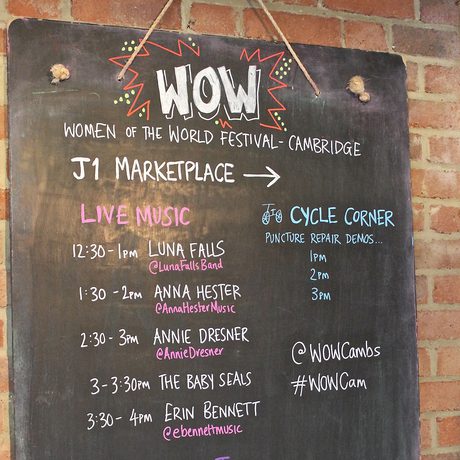 WOW
WOMEN OF THE WORLD FESTIVAL - CAMBRIDGE
J1 MARKETPLACE →
LIVE MUSIC
12:30 - 1PM LUNA FALLS
@LunaFallsBand
1:30 - 2PM ANNA HESTER
@AnnaHesterMusic
2:30 - 3PM ANNIE DRESNER
@AnnieDresner
3 - 3:30PM THE BABY SEALS
3:30 - 4PM ERIN BENNETT
@ebennettmusic
CYCLE CORNER
PUNCTURE REPAIR DEMOS...
1PM
2PM
3PM
@WOWCambs
#WOWCam